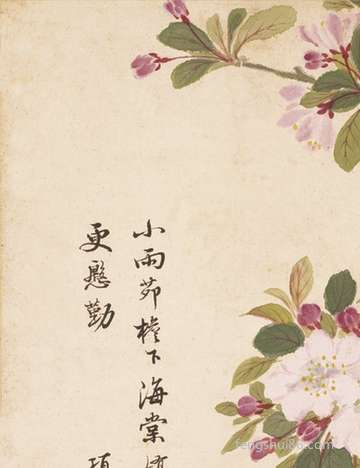 小雨茆檐下海棠
更慇勤
fengshui86.com